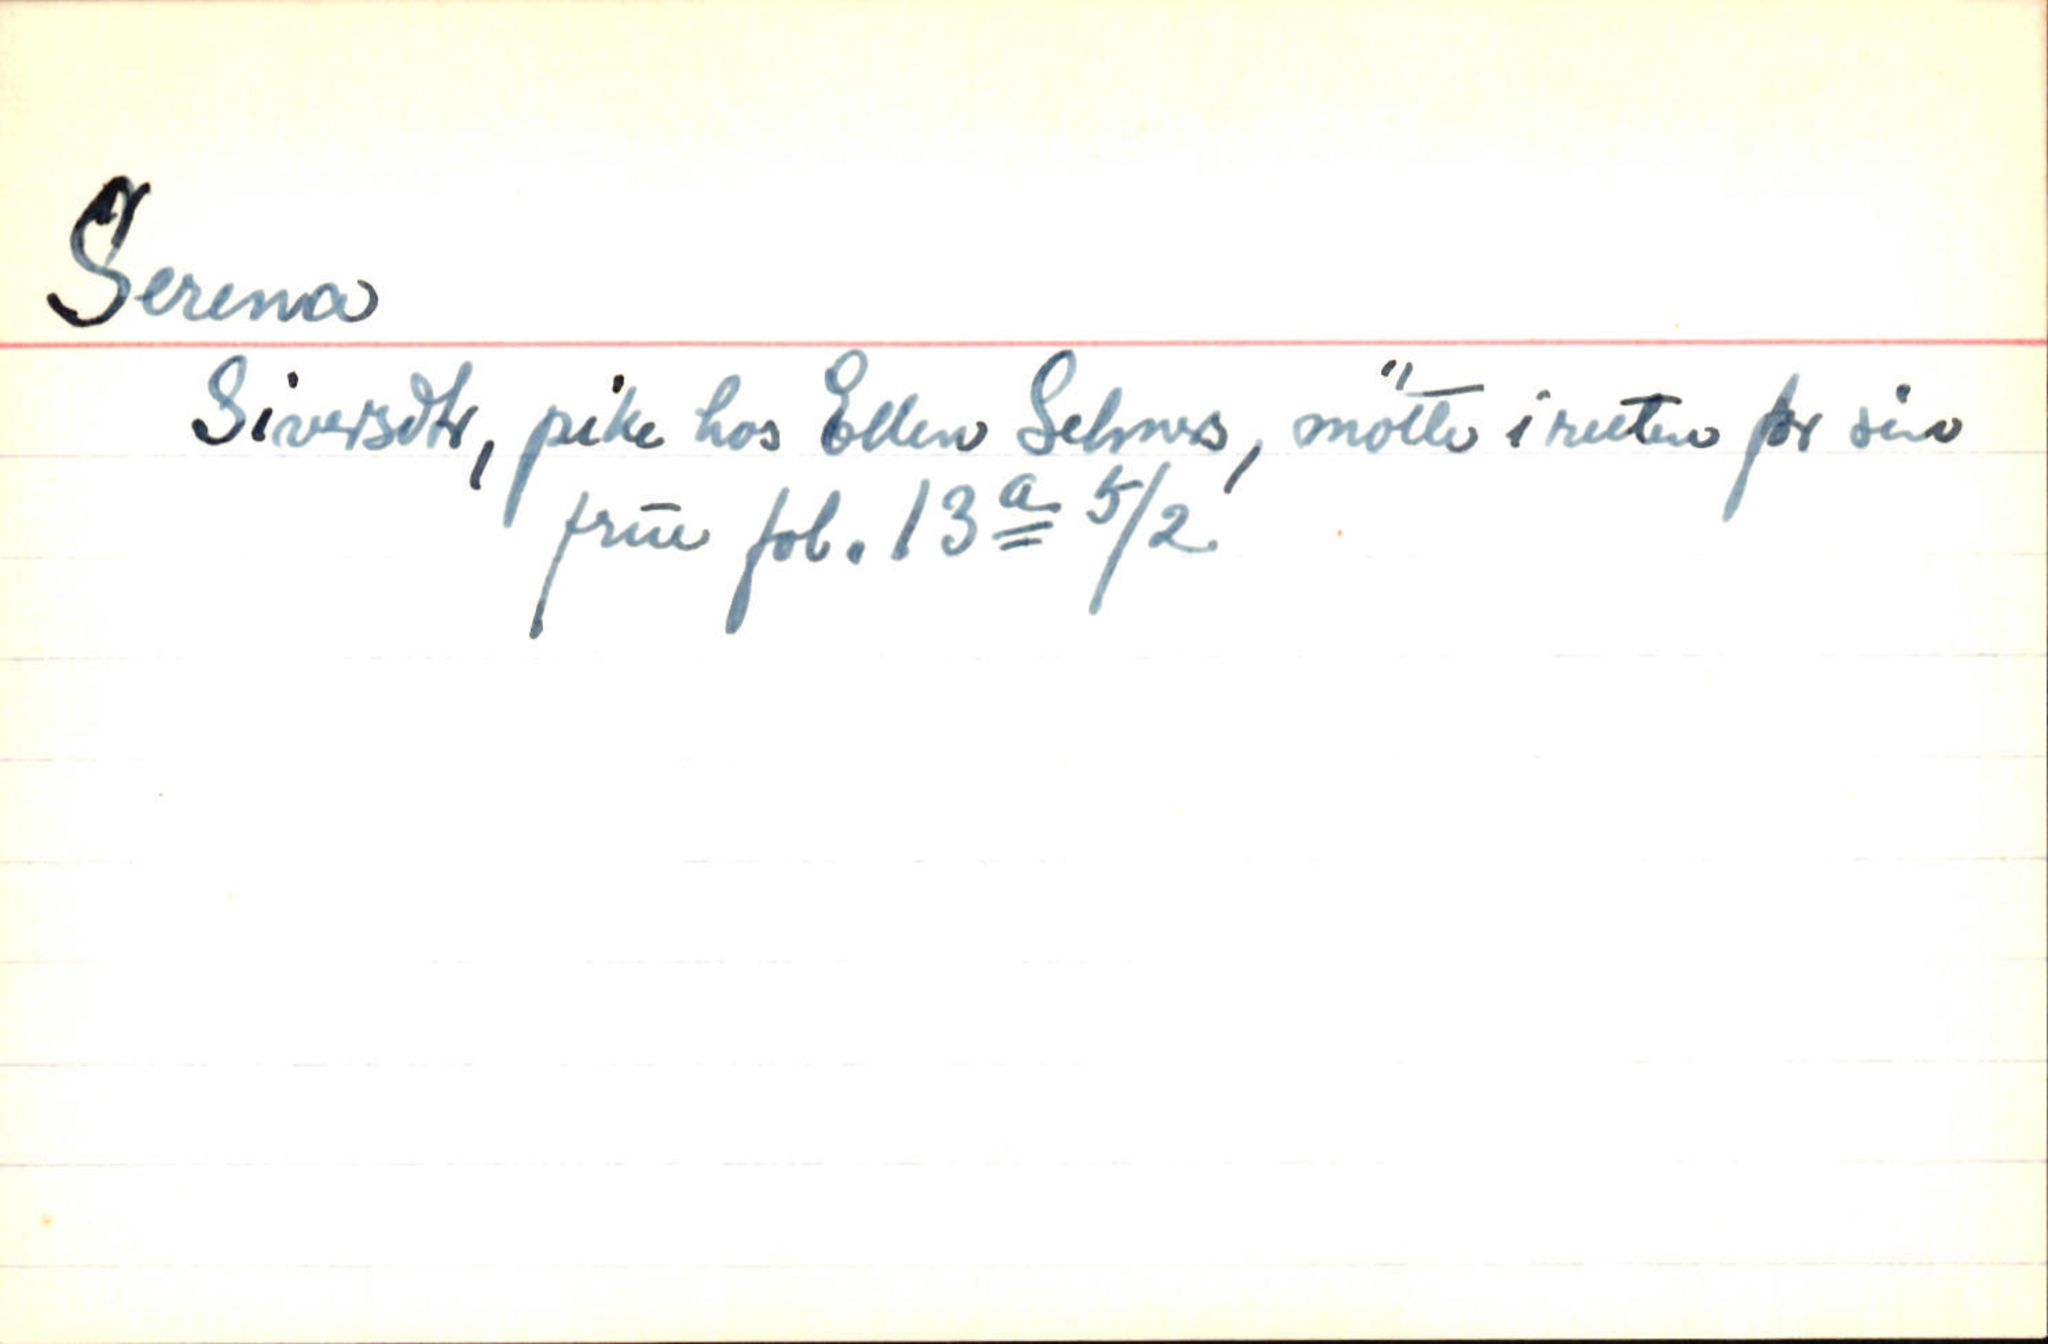 Serena
Siversdtr, pike hos Ellen Selmers, mötte i retten for sin
frue fol. 13a 5/2